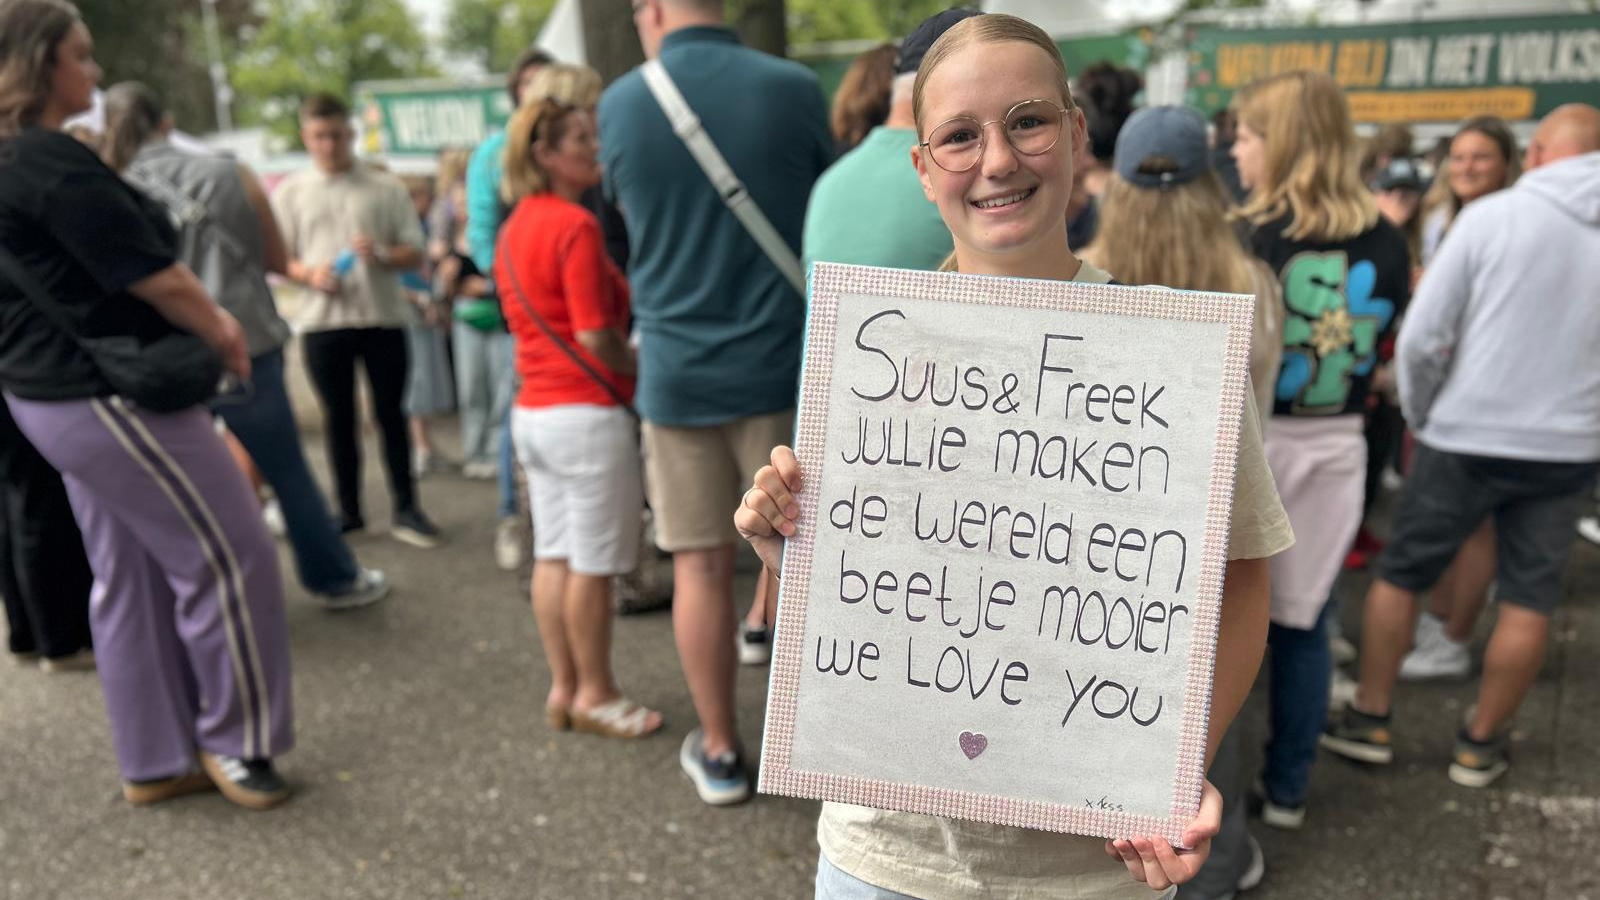 WELKOM
WELKOM BIJ IN HET VOLKS
S
F
Suus & Freek
jullie maken
de wereld een
beetje mooier
we love you
x Tess